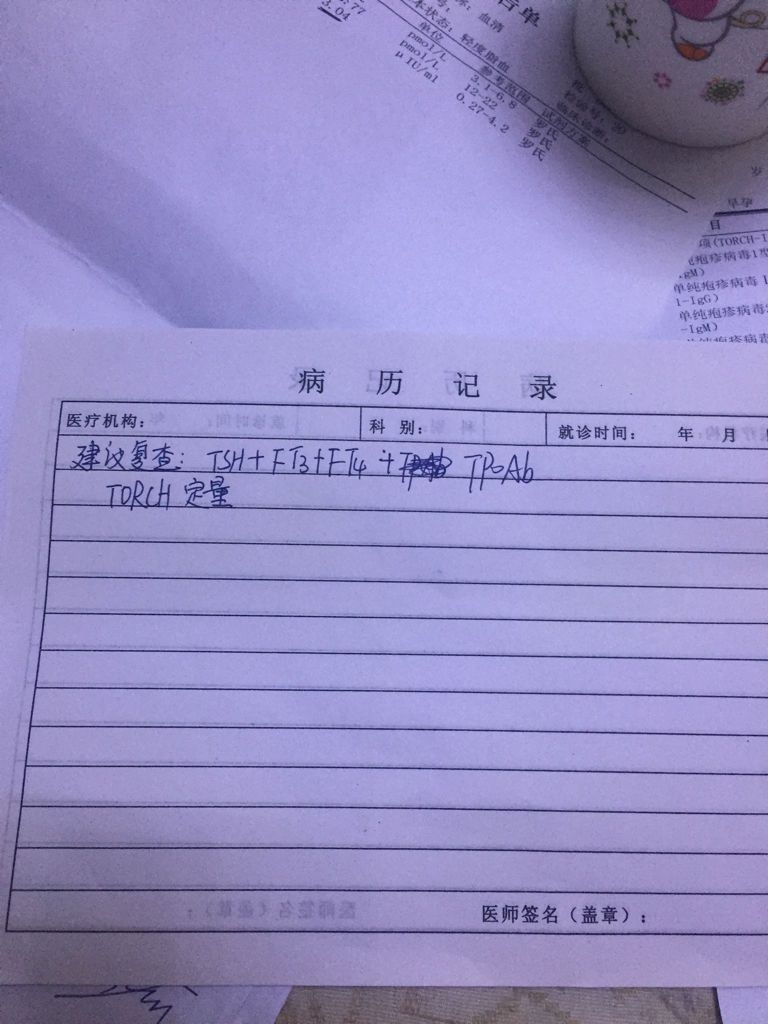 3.04
血清
本状态: 轻度脂血
单位 参考范围 试剂方案
pmol/L 3.1-6.8 罗氏
pmol/L 12-22 罗氏
μIU/ml 0.27-4.2 罗氏
目
项(TORCH-I
单纯疱疹病毒1型
IgM)
单纯疱疹病毒 I
1-IgG)
单纯疱疹病毒
-IgM)
病历记录
医疗机构: 科 别: 就诊时间: 年 月
建议复查: TSH+FT3+FT4+ TPoAb
TORCH 定量
医师签名(盖章):